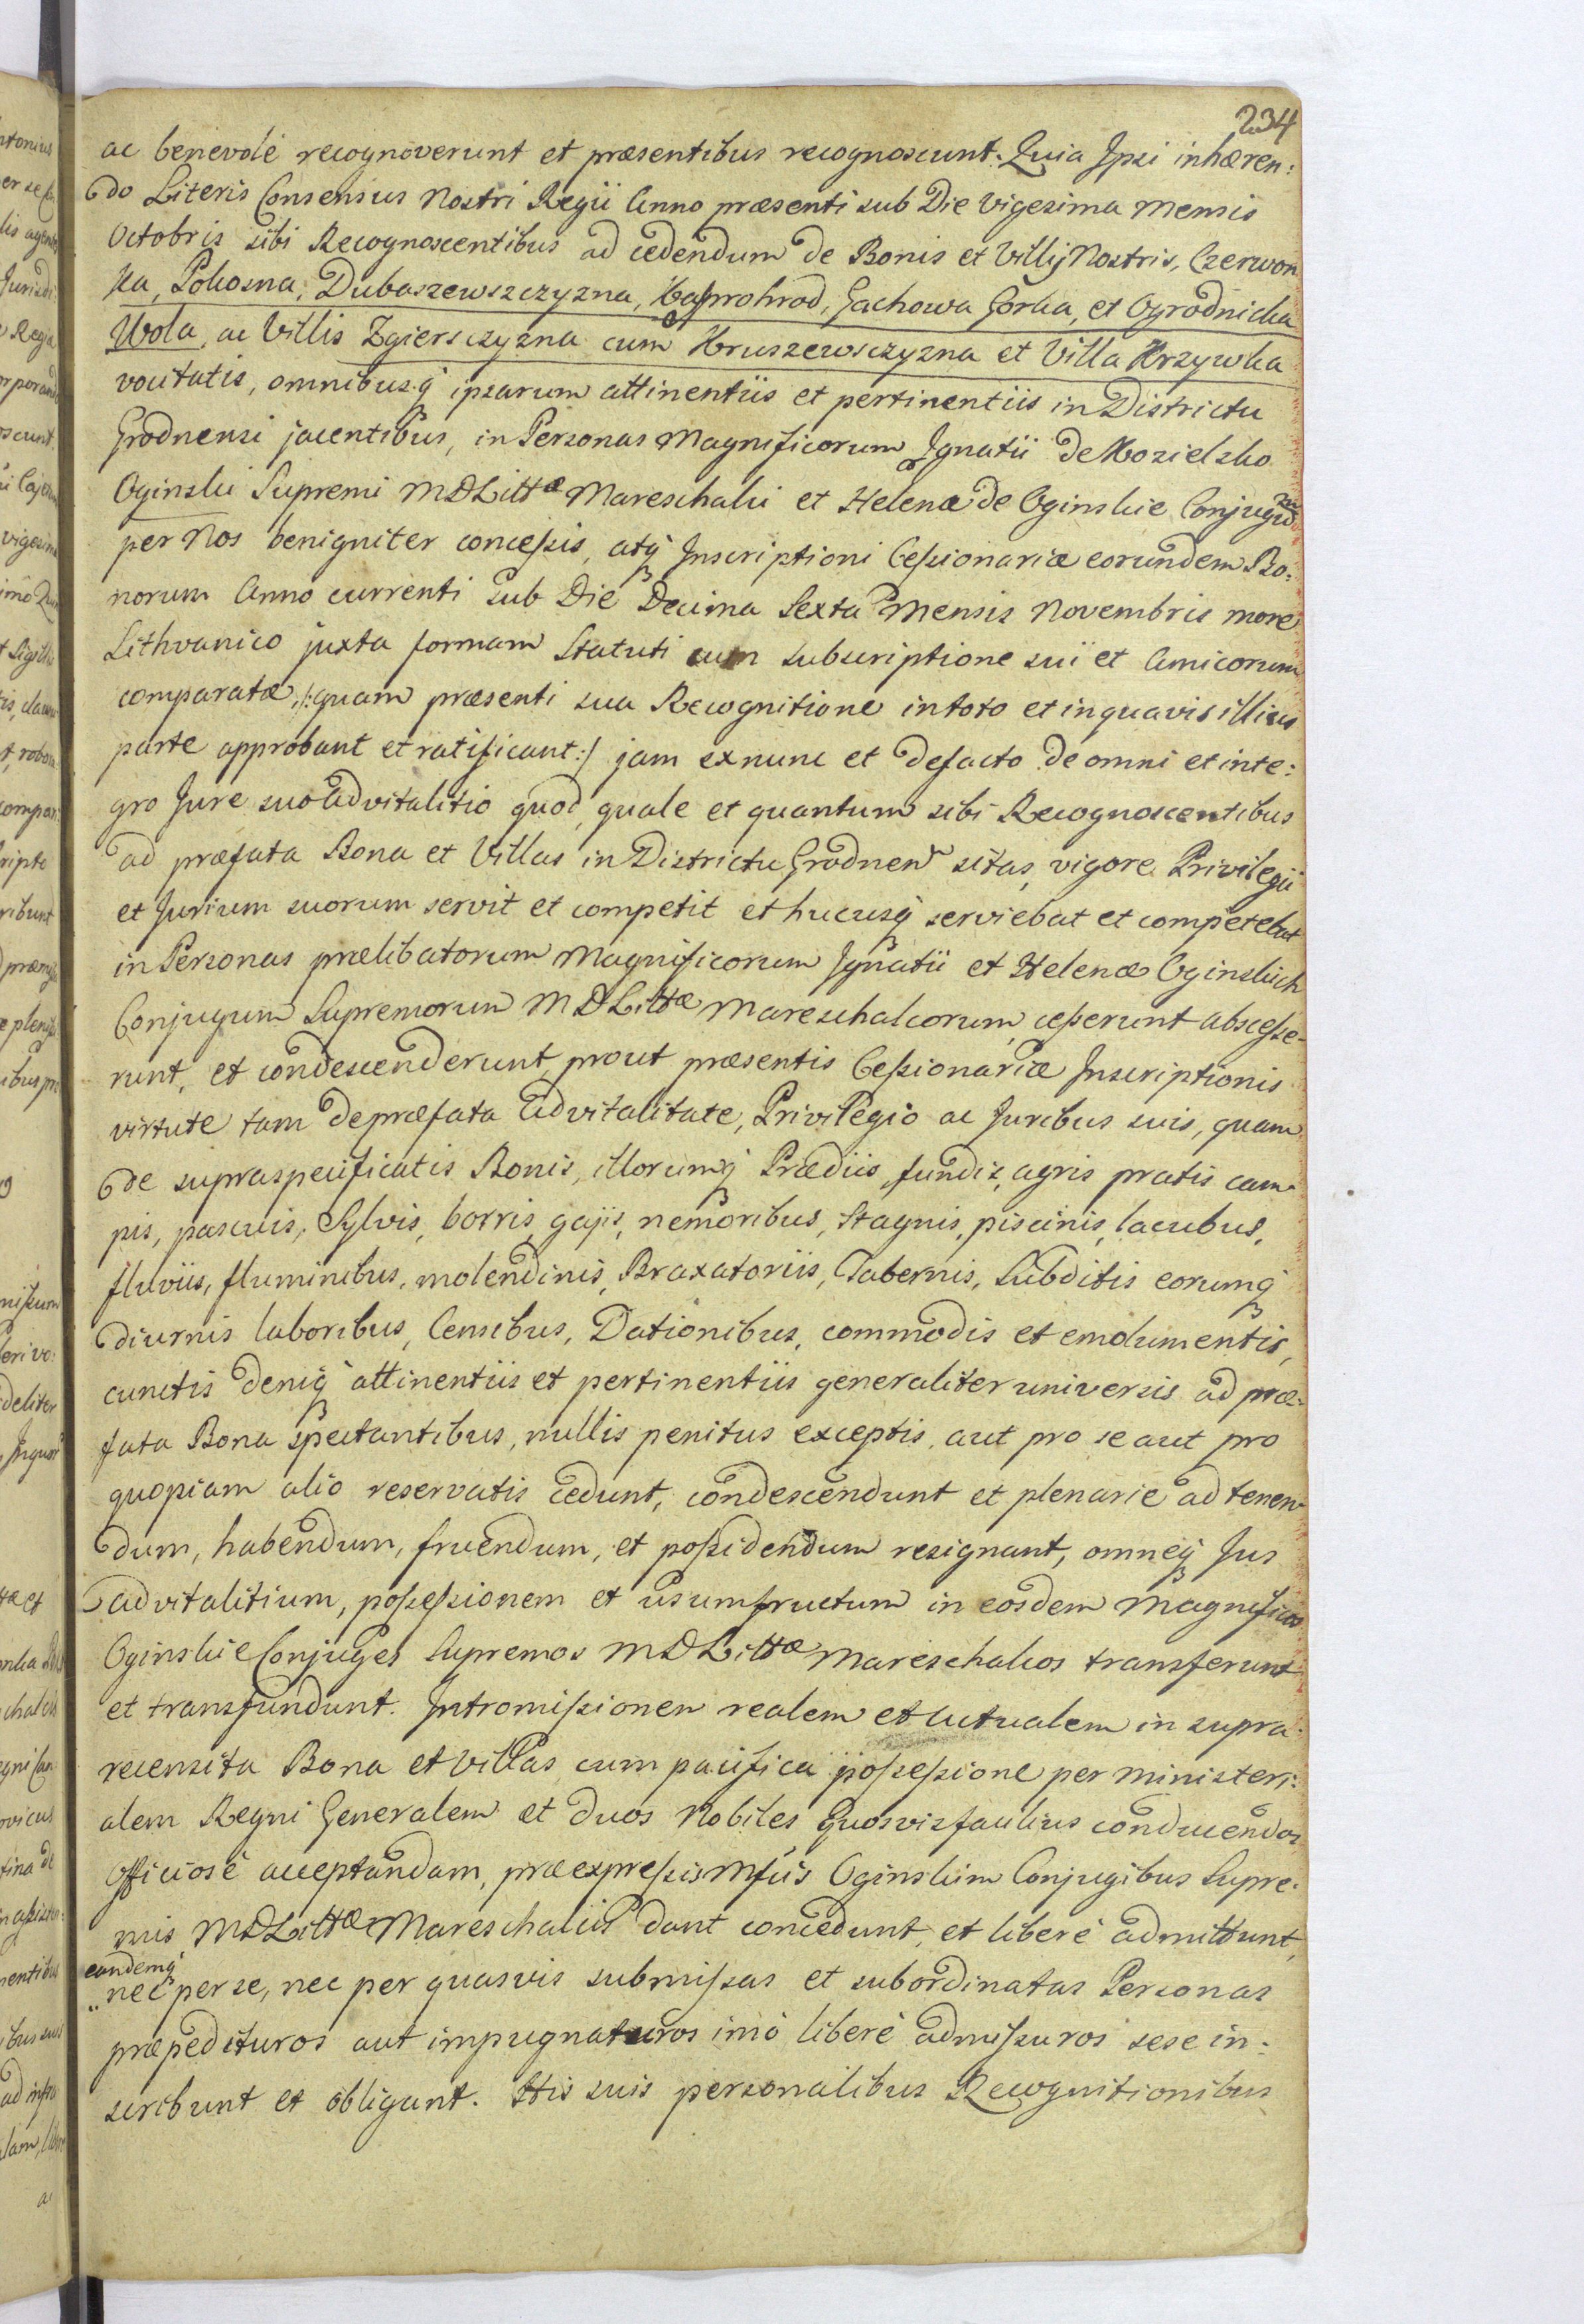 234
ac benevolè recognoverunt et præsentibus recognoscunt. Quia Ipsi inhæren:
do Literis Consensus Nostri Regii Anno præsenti sub Die Vigesima Mensis
Octobris sibi Recognoscentibus ad cedendum de Bonis et Villij Nostris, Czerwon
ka, Pokosna, Dubaszewszczyzna, Kaprohrod, Gachowa Gorka, et Ogrodnicka
Wola, ac Villis Zgiersczyzna cum Hruszewsczyzna et Villa Krzywka
vocitatis, omnibusq́ ipsarum attinentiis et pertinentiis in Districtu
Grodnensi jacentibus, in Personas Magnificorum Ignatii de Kozielsko
Oginski Supremi MDLittæ Mareschalci et Helenæ de Oginskie Conjugum
per Nos benigniter concessis, atq́ Inscriptioni Cessionariæ eorundem Bo:
norum Anno currenti sub Die Decima Sexta Mensis Novembris more
Lithvanico juxta formam Statuti cum subscriptione sui et Amicorum
comparatæ, /:quam præsenti sua Recognitione in toto et in quavis illius
parte approbant et ratificant:/ jam ex nunc et de facto de omni et inte:
gro Jure suo Advitalitio quod, quale et quantum sibi Recognoscentibus
ad præfata Bona et Villas in Districtu Grodnen sitas, vigore Privilegii
et Jurium suorum servit et competit et hucusq́ serviebat et competebat
in Personas prælibatorum Magnificorum Ignatii et Helenæ Oginskich
Conjugum Supremorum MDLittæ Mareschalcorum cesserunt abscesse-
runt, et condescenderunt, prout præsentis Cessionariæ Inscriptionis
virtute tam de præfata Advitalitate, Privilegio ac Juribus suis, quam
de supraspecificatis Bonis, illorumq́ Prædiis, fundis, agris pratis cam
pis, pascuis, Sylvis, borris, gajis, nemoribus, Stagnis, piscinis, lacubus,
fluviis, fluminibus, molendinis, Braxatoriis, Tabernis, Subditis eorumq́
diurnis laboribus, Censibus, Dationibus, commodis et emolumentis,
cunctis deniq́ attinentiis et pertinentiis generaliter universis ad præ-
fata Bona spectantibus, nullis penitus exceptis, aut pro se aut pro
quopiam alio reservatis cedunt, condescendunt et plenarie ad tenen
dum, habendum, fruendum, et possidendum resignant, omneq́ Jus
advitalitium, possessionem et usumfructum in eosdem Magnificos
Oginskie Conjuges Supremos MDLittæ Mareschalcos transferunt
et transfundunt. Intromissionem realem et actualem in supra-
recensita Bona et Villas cum pacifica possessione per Ministeri:
alem Regni Generalem et duos Nobiles Quosvis faulius conducendos
officiosè acceptandam, præexpressis Mfcis Oginskim Conjugibus Supre-
mis MDLittæ Mareschalcis dant concedunt, et liberè admittunt,
eandemq́
nec per se, nec per quasvis submissas et subordinatas Personas
præpedituros aut impugnaturos imò liberè admissuros sese in:
scribunt et obligant. His suis personalibus Recognitionibus